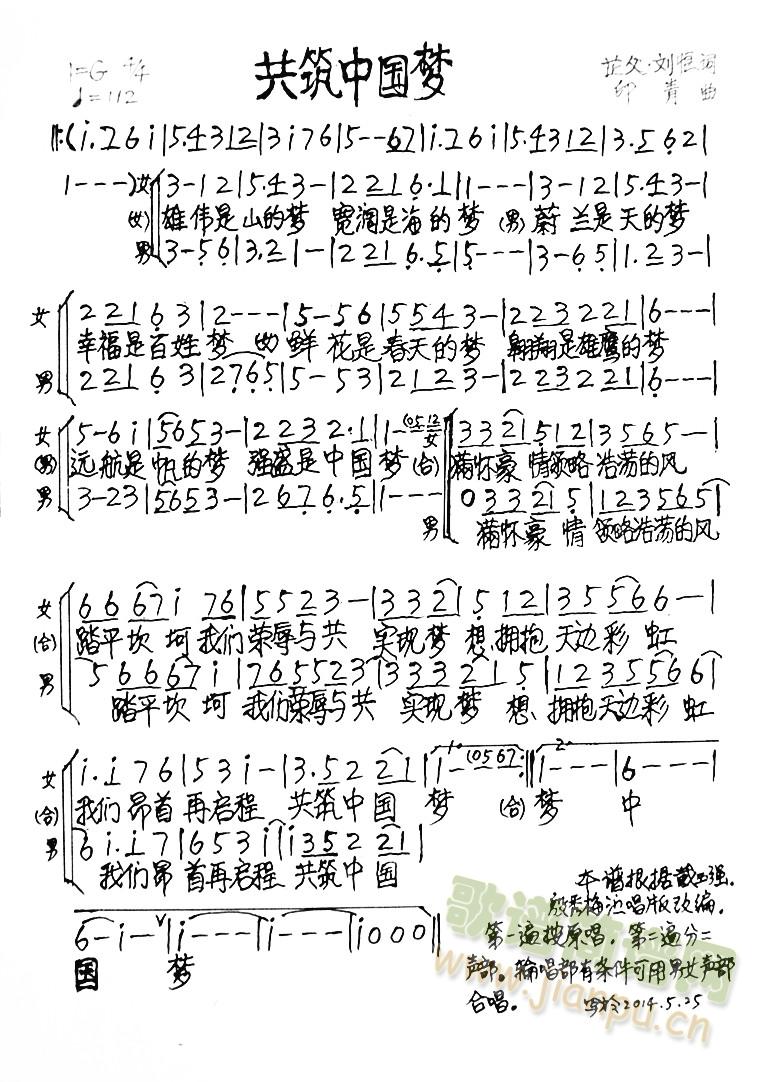 共筑中国梦
1=G 4/4
♩=112
芷父·刘恒词
印青 曲
‖:(i.7 6 i|5.4 3 1 2|3 i 7 6|5--6 7|i.7 6 i|5.4 3 1 2|3.5 6 2|
1---)女 3-1 2|5.4 3-|2 2 1 6·1|1---|3-1 2|5.4 3-|
(女)雄伟是山的梦 宽阔是海的梦 (男)蔚兰是天的梦
男 3-5 6|3.2 1-|2 2 1 6.5|5---|3-6 5|1.2 3-|
女 2 2 1 6 3|2---|5-5 6|5 5 4 3-|2 2 3 2 2 1|6---|
幸福是百姓梦 (女)鲜花是春天的梦 翱翔是雄鹰的梦
男 2 2 1 6 3|2 7 6 5|5-5 3|2 1 2 3-|2 2 3 2 2 1|6---|
女 5-6 i|5 6 5 3-|2 2 3 2 2·1|1-(0 5 1 2 女 3 3 2 1 5 1 2|3 5 6 5--|
(男)远航是帆的梦 强盛是中国梦(合) 满怀豪情领略浩荡的风
男 3-2 3|5 6 5 3-|2 6 7 6.5|1--- 男 0 3 3 2 1 5|1 2 3 5 6 5|
满怀豪情 领略浩荡的风
女 6 6 6 7 i 7 6|5 5 2 3-|3 3 2 1 5 1 2|3 5 5 6 6--|
(合)踏平坎坷我们荣辱与共 实现梦想,拥抱天边彩虹
男 5 6 6 6 7 i|7 6 5 5 2 3|3 3 3 2 1 5|1 2 3 5 5 6 6|
踏平坎坷 我们荣辱与共 实现梦想、拥抱天边彩虹
女 i.i 7 6|5 3 i-|3.5 2 2 1|1. i---(0 5 6 7:‖2. i---|6---|
(合)我们昂首再启程 共筑中国 梦 (合)梦 中
男 6 i.i 7|6 5 3 i|i 3 5 2 2 1|
我们昂首再启程 共筑中国
6-i-∨|i---|i---|i 0 0 0‖
国 梦
本谱根据戴玉强.
殷秀梅泣唱版改编.
第一遍按原唱。第二遍分二
声部。轮唱部有条件可用男女声部
合唱。 写于2014.5.25
歌谱简谱网
www.jianpu.cn